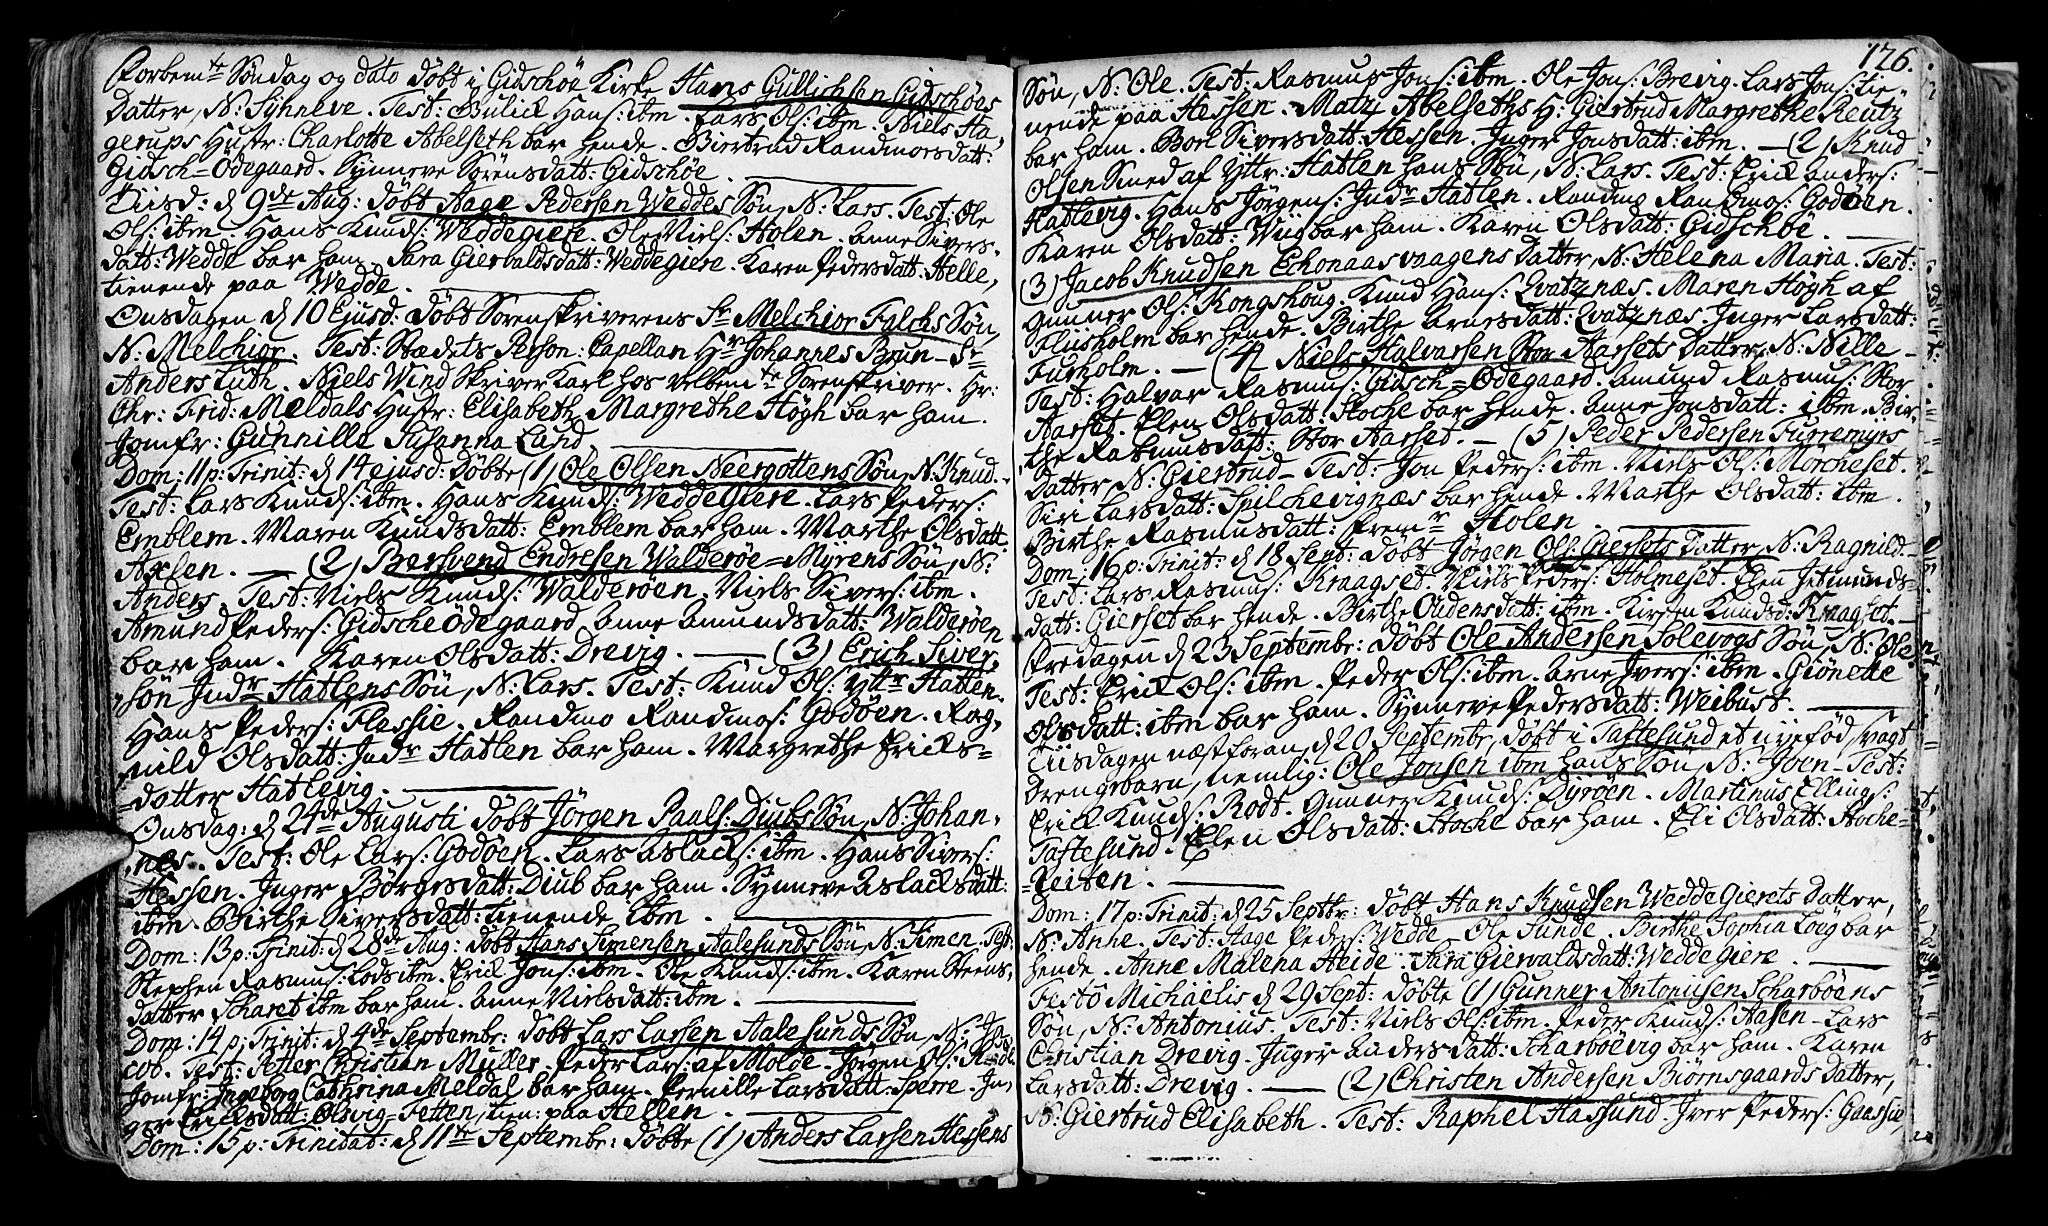 Forbemte Søndag og dato døbt i Gidschøe Kirke Hans Gullichsen Gidschøes
Datter, N: Synneve. Test: Gulick Hans: ibm. Lars Ols: ibm. Niels Ha,
gerups Hustr: Charlotte Abelseth bar hende. Giertrud Randmorsdatt:
Gidsch=Ødegaard. Synneve Sørensdatt: Gidschøe.
Tiisd: d 9de Aug: døbt Aage Pedersen Weddes Søn, N: Lars. Test: Ole
Ols: ibm. Hans Knuds: Weddegiere. Ole Niels: Holen. Anne Sivers,
datt: Wedde bar ham. Sara Giervaldsdatt: Weddegiere. Karen Pedersdatt: Helle,
tienende paa Wedde.
Onsdagen d 10 Ejusd: døbt Sorenskriverens Sr Melchior Falchs Søn,
N: Melchior. Test: Stædets Person: Capellan Hr Johannes Brun - Sr
Anders Luth. Niels Wind Skriver Karl hos velbemte Sorenskriver. Hr:
Chr: Frid: Meldals Hustr: Elisabeth Margrethe Høgh bar ham.
Jomfr: Gunnille Susanna Lund.
Dom: 11 p: Trinit: d 14 ejusd: døbte (1) Ole Olsen Neergottens Søn, N: Knud.
Test: Lars Knuds: ibm. Hans Knuds: Weddegiere. Lars Peders:
Emblem. Maren Knudsdatt: Emblem bar ham. Marthe Olsdatt:
Axlen. — (2) Bersvend Endresen Walderøe=Myrens Søn, N:
Anders. Test: Niels Knuds: Walderøen. Niels Sivers: ibm.
Amund Peders: Gidsche Ødegaard. Anne Amundsdatt: Walderøen
bar ham. Karen Olsdatt: Drevig. — (3) Erich Siver,
søn Indr Hatlens Søn, N: Lars. Test: Knud Ols: Yttr Hatlen.
Hans Peders: Flessie. Randmo Randmos: Godøen. Rag,
nild Olsdatt: Indr Hatlen bar ham. Margrethe Ericks=
=datter Hatlevig.
Onsdag: d 24de Augusti døbt Jørgen Paals: Diubs Søn, N: Johan,
nes. Test: Ole Lars: Godøen. Lars Aslacks: ibm. Hans Sivers:
Hessen. Inger Børgesdatt: Diub bar ham. Synneve Aslacksdatt:
ibm. Birthe Siversdatt: tienende ibm.
Dom: 13 p: Trinit: d 28de Aug: døbt Hans Simensen Aalesunds Søn, N: Simen. Test:
Stephen Rasmus: Lods ibm. Erick Jons: ibm. Ole Knuds: ibm. Karen Steens,
datter Scharet ibm bar ham. Anne Nielsdatt: ibm.
Dom: 14 p: Trinit: d 4de Septembr: døbt Lars Larsen Aalesunds Søn, N: Ja
cob. Test: Petter Christian Muller. Peder Lars: af Molde. Jørgen Ols:
Jomfr: Ingeborg Cathrina Meldal bar ham. Pernille Larsdatt: Sperre. In,
ger Ericksdatt: Olsvig=Fetten, tien: paa Hellen.
Dom: 15 p: Trinitat: d 11te Septembr: døbte (1) Anders Larsen Hessens
126.
Søn, N: Ole. Test: Rasmus Jons: ibm. Ole Jons: Brevig. Lars Jons: tie=
nende paa Hessen. Matz Abelseths H: Giertrud Margrethe Reutz
bar ham. Borl Siversdatt: Hessen. Inger Jonsdatt: ibm. — (2) Knud
Olsen Smed af Yttr: Hatlen hans Søn, N: Lars. Test: Erick Anders:
Hatlevig. Hans Jørgens: Indr Hatlen. Randmo Randmos: Godøen.
Karen Olsdatt: Wiig bar ham. Karen Olsdatt: Gidschøe.
(3) Jacob Knudsen Echonaasvaagens Datter, N: Helena Maria. Test:
Gunner Ols: Kongshoug. Knud Hans: Qvatznæs. Maren Høgh af
Fliisholm bar hende. Birthe Arnesdatt: Qvatznæs. Inger Larsdatt:
Furholm. — (4 Niels Halvarsen Stor Aarsets Datter, N: Nille —
Test: Halvar Rasmus: Gidsch=Ødegaard. Amund Rasmus: Stor
Aarset. Elen Olsdatt: Stoche bar hende. Anne Jonsdatt: ibm. Bir,
the Rasmusdatt: Stor Aarset. — (5) Peder Pedersen Furremyrs
Datter, N: Giertrud — Test: Jon Peders: ibm. Niels Ols: Morcheset.
Siri Larsdatt: Spilchevignæs bar hende. Marthe Olsdatt: ibm.
Birthe Rasmusdatt: Fremr Holen.
Dom: 16 p: Trinit: d 18 Sept: døbt Jørgen Ols: Giersets Datter, N: Ragnild.
Test: Lars Rasmus: Kraagset. Niels Peders: Holmeset. Elen Jetmunds=
datt: Gierset bar hende. Birthe Oudensdatt: ibm. Kirsten Knudsd: Kraagset.
Fredagen d 23 Septembr: døbt Ole Andersen Solevogs Søn, N: Ole.
Test: Erick Ols: ibm. Peder Ols: ibm. Arne Ivers: ibm. Giønette
Olsdatt: ibm bar ham. Synneve Pedersdatt: Weibust.
Tiisdagen næstforan, d 20 Septembr, døbt i Taftesund et uvefød svagt
Drengebarn, nemlig: Ole Jonsen ibm hans Søn, N: Joen — Test:
Erick Knuds: Rodt. Gunner Knuds: Dyrøen. Martinus Ellings:
Taftesund. Elen Olsdatt: Stoche bar ham. Eli Olsdatt: Stoche=
=Reiten.
Dom: 17 p: Trinit: d 25 Septbr: døbt Hans Knudsen Weddegierets Datter,
N: Anne. Test: Aage Peders: Wedde. Ole Sunde. Birthe Sophia Løeg bar
hende. Anne Malena Heide. Sara Giervaldsdatt: Weddegiere.
Festô Michaëlis d 29 Sept: døbte (1) Gunner Antoniisen Scharbøens
Søn, N: Antonius. Test: Niels Ols: ibm. Peder Knuds: Aasen — Lars
Christian Drevig. Inger Andersdatt: Scharbøevig bar ham. Karen
Larsdatt: Drevig. — (2) Christen Andersen Biørnsgaards Datter,
N: Giertrud Elisabeth. Test: Raphel Hassund. Iver Peders: Gaassie,